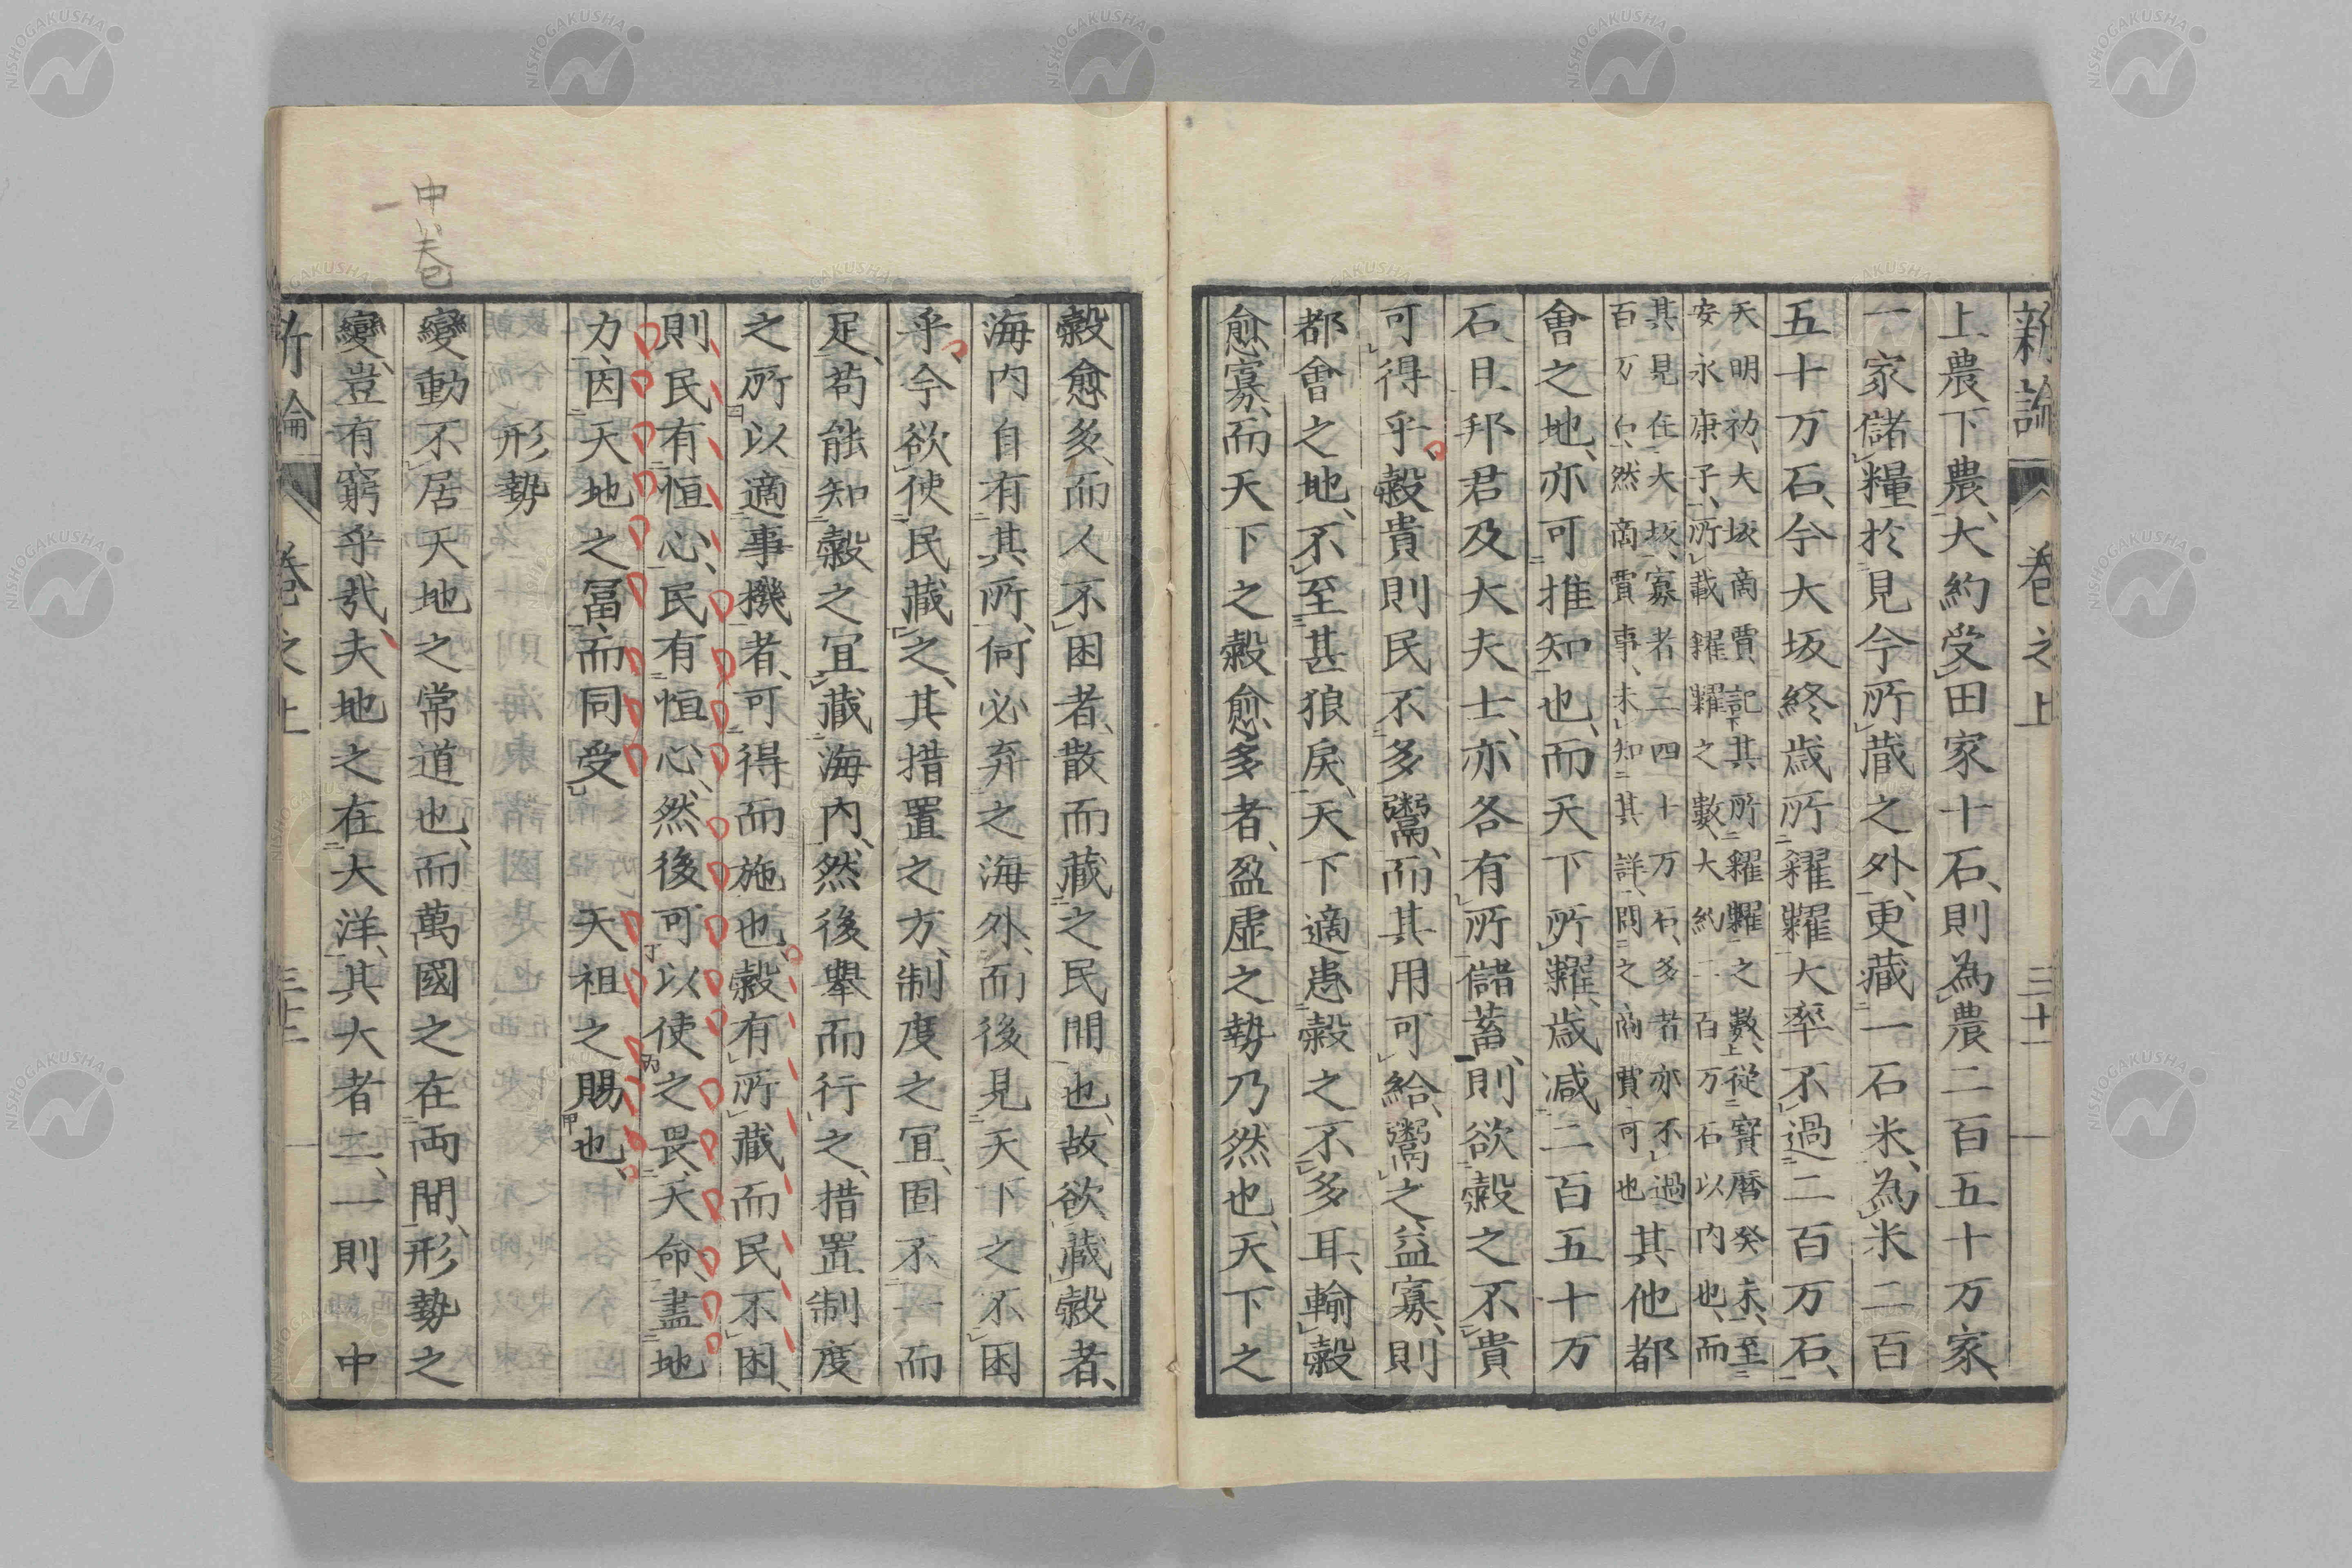 新論 卷之上 三十一
上農下農、大約受田家十石、則為農二百五十万家、
一家儲糧於見今所蔵之外、更藏一石米、為米二百
五十万石、今大坂終歳所糴糶大率不過二百万石、
天明初、大坂商賈記其所糴糶之數、從寶曆癸未、至
安永庚子、所載糴糶之數、大約二百万石以内也、而
其見在大坂、寡者三四十万石、多者亦不過
百万石、然商賈事、未知其詳、問之商賈可也
其他都
會之地、亦可推知也、而天下所糶、歳减二百五十万
石、且邦君及大夫士、亦各有所儲蓄、則欲穀之不貴
可得乎、穀貴則民不多鬻、而其用可給、鬻之益寡、則
都會之地、不至甚狼戾、天下適患穀之不多耳、輸穀
愈寡、而天下之穀愈多者、盈虛之勢乃然也、天下之
穀愈多、而人不困者、散而藏之民間也、故欲蔵穀者、
海内自有其所、何必弃之海外、而後見天下之不困
乎、今欲使民藏之、其措置之方、制度之宜、固不一而
足、苟能知穀之宜藏海内、然後舉而行之、措置制度
之所以適事機者、可得而施也、穀有所藏、而民不困、
則民有恒心、民有恒心、然後可以使之畏天命、盡地
力、因天地之冨、而同受 天祖之賜也、
形勢
變動不居天地之常道也、而萬國之在両間、形勢之
變、豈有窮乎哉、夫地之在大洋、其大者二、一則中
新論 卷之上 三十二
中ハ巻
一